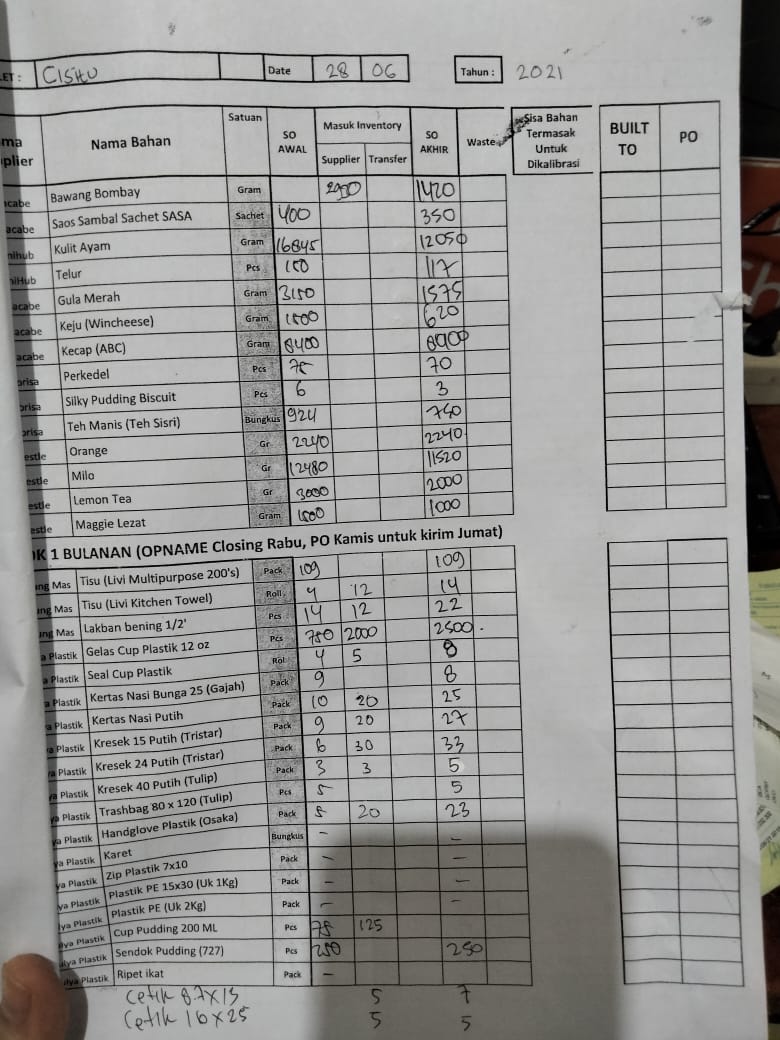 ET : CISITU Date 28 06 Tahun : 2021
ma plier Nama Bahan Satuan SO AWAL Masuk Inventory Supplier Transfer SO AKHIR Waste Sisa Bahan Termasak Untuk Dikalibrasi BUILT TO PO
acabe Bawang Bombay Gram 1420
acabe Saos Sambal Sachet SASA Sachet 400 350
nihub Kulit Ayam Gram 16845 12050
niHub Telur Pcs 150 117
acabe Gula Merah Gram 3150 1575
acabe Keju (Wincheese) Gram 1500 620
acabe Kecap (ABC) Gram 8400 8900
orisa Perkedel Pcs 75 70
orisa Silky Pudding Biscuit Pcs 6 3
orisa Teh Manis (Teh Sisri) Bungkus 924 740
estle Orange Gr 2240 2240
estle Milo Gr 12480 11520
estle Lemon Tea Gr 3000 2000
estle Maggie Lezat Gram 1500 1000
OK 1 BULANAN (OPNAME Closing Rabu, PO Kamis untuk kirim Jumat)
ng Mas Tisu (Livi Multipurpose 200's) Pack 109 109
ng Mas Tisu (Livi Kitchen Towel) Roll 4 12 14
ng Mas Lakban bening 1/2' Pcs 14 12 22
a Plastik Gelas Cup Plastik 12 oz Pcs 750 2000 2500
a Plastik Seal Cup Plastik Rol 4 5 8
a Plastik Kertas Nasi Bunga 25 (Gajah) Pack 9 8
a Plastik Kertas Nasi Putih Pack 10 20 25
a Plastik Kresek 15 Putih (Tristar) Pack 9 20 27
a Plastik Kresek 24 Putih (Tristar) Pack 6 30 33
ya Plastik Kresek 40 Putih (Tulip) Pack 3 3 5
ya Plastik Trashbag 80 x 120 (Tulip) Pcs 5 5
ya Plastik Handglove Plastik (Osaka) Pack 5 20 23
ya Plastik Karet Bungkus - -
ya Plastik Zip Plastik 7x10 Pack - -
ya Plastik Plastik PE 15x30 (Uk 1Kg) Pack - -
lya Plastik Plastik PE (Uk 2Kg) Pack - -
ulya Plastik Cup Pudding 200 ML Pcs 75 125
ulya Plastik Sendok Pudding (727) Pcs 250 250
ulya Plastik Ripet ikat Pack -
Cetik 8.7x13 5 7
Cetik 16x25 5 5